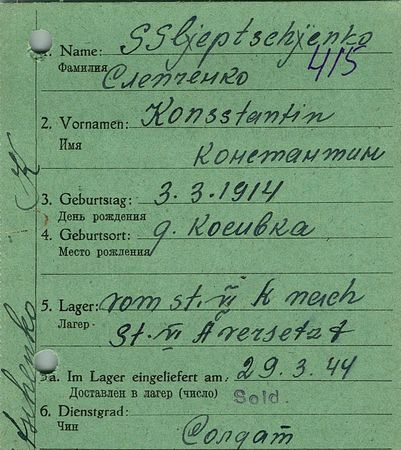 1. Name: SSljeptschjenko
Фамилия 415
Слепченко
2. Vornamen: Konsstantin
Имя
Константин
3. Geburtstag: 3.3.1914
День рождения
4. Geburtsort: д. Косивка
Место рождения
5. Lager: vom st. VI K nach
Лагер st. VI A versetzt
5a. Im Lager eingeliefert am: 29.3.44
Доставлен в лагер (число) Sold.
6. Dienstgrad:
Чин Солдат